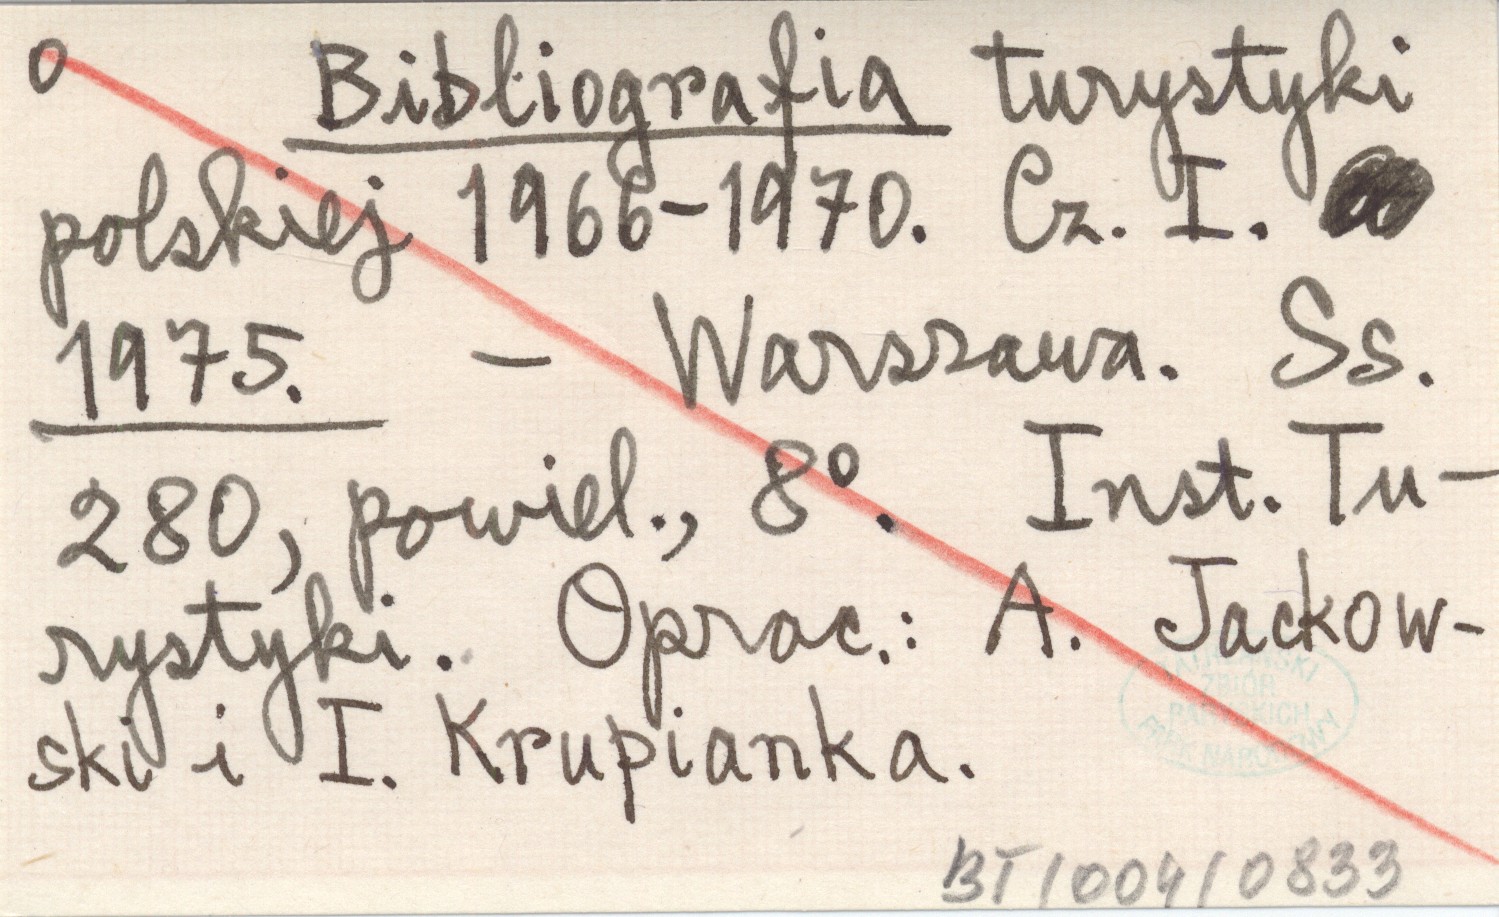 o Bibliografia turystyki
polskiej 1966-1970. Cz. I.
1975. - Warszawa. Ss.
280, powiel., 8°. Inst. Tu-
rystyki. Oprac.: A. Jackow-
ski i I. Krupianka.
ZBIÓR
BT/004/0833